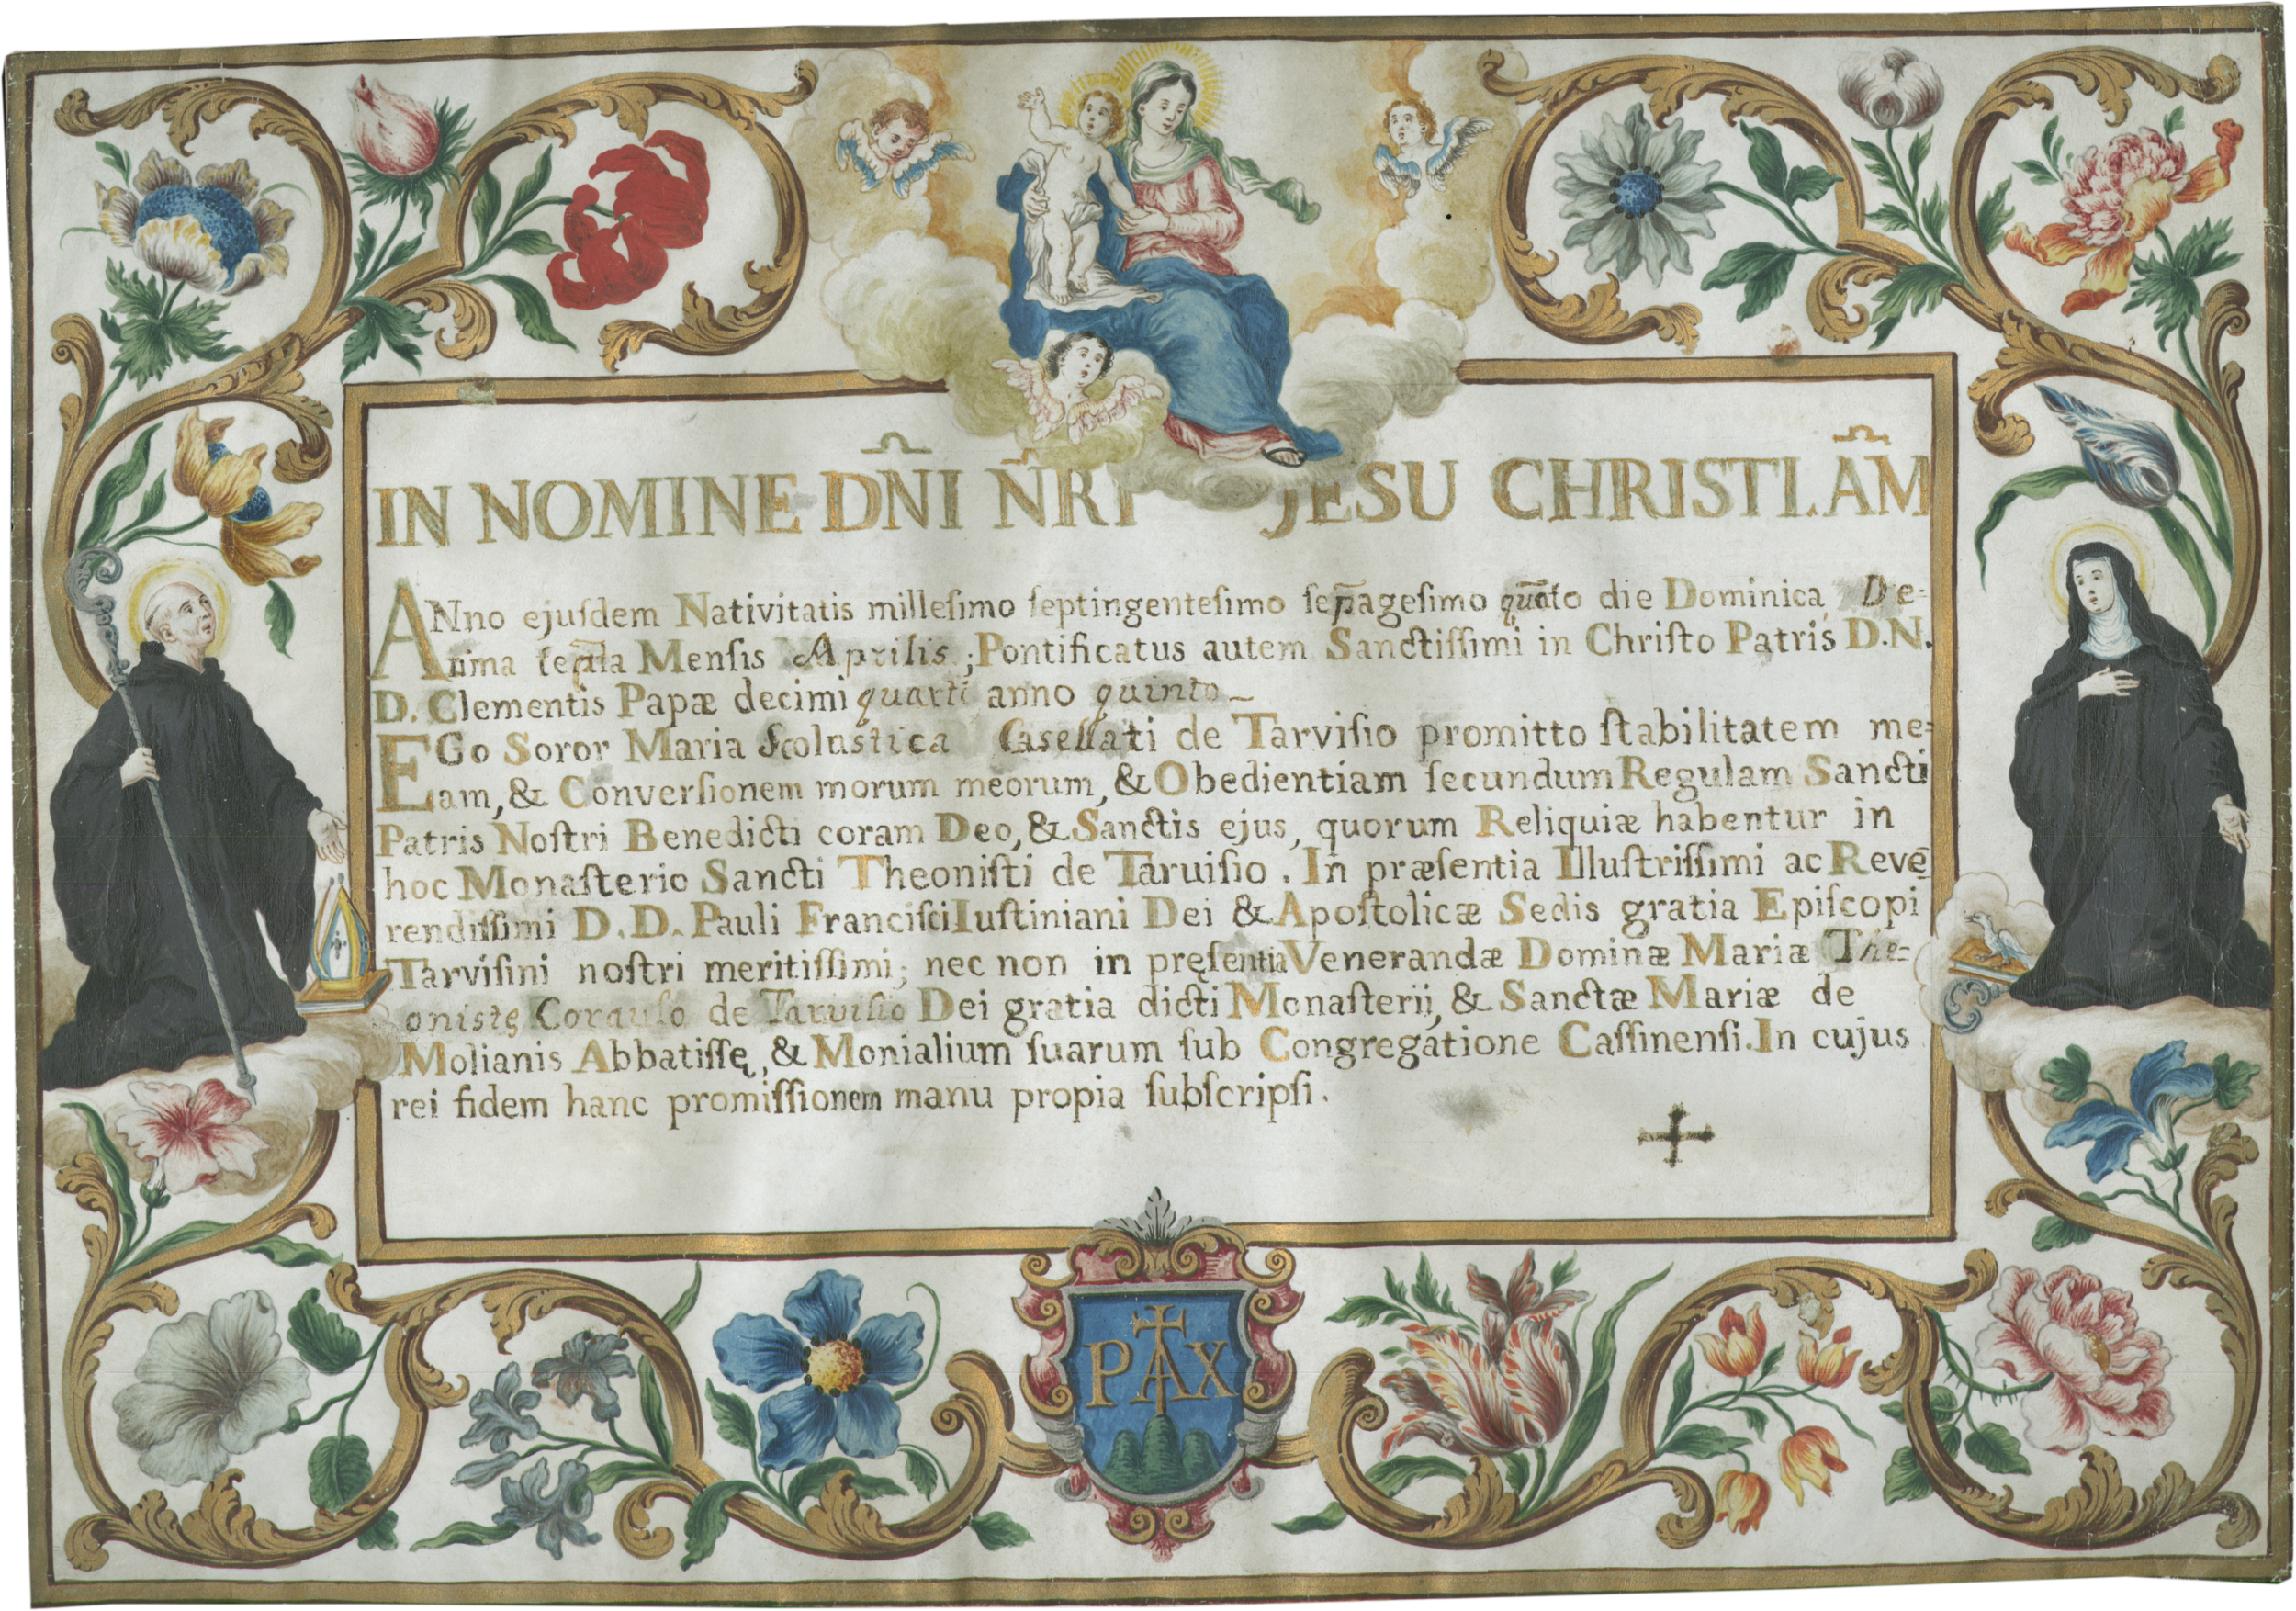 IN NOMINE DN̄I N̄RI JESU CHRISTI. AM̄
ANno ejuſdem Nativitatis milleſimo ſeptingenteſimo die Dominica De=
Menſis Aprilis; Pontificatus autem Sanctiſſimi in Chriſto Patris D. N.
D. Clementis Papæ decimi quarti anno quinto_
EGo Soror Maria Scolastica Casellati de Tarviſio promitto ſtabilitatem me=
am, & Converſionem morum meorum, & Obedientiam ſecundum Regulam Sancti
Patris Noſtri Benedicti coram Deo, & Sanctis ejus, quorum Reliquiæ habentur in
hoc Monaſterio Sancti Theoniſti de Taruiſio. In præſentia Illuſtriſſimi ac Reve=
rendiſſimi D. D. Pauli Franciſci Iuſtiniani Dei & Apoſtolicæ Sedis gratia Epiſcopi
Tarviſini noſtri meritiſſimi; nec non in pręſentia Venerandæ Dominæ Mariæ The=
onistę de Tarviſio Dei gratia dicti Monaſterij, & Sanctæ Mariæ de
Molianis Abbatiſſę, & Monialium ſuarum ſub Congregatione Caſſinenſi. In cujus
rei fidem hanc promiſſionem manu propia ſubſcripſi.
PAX